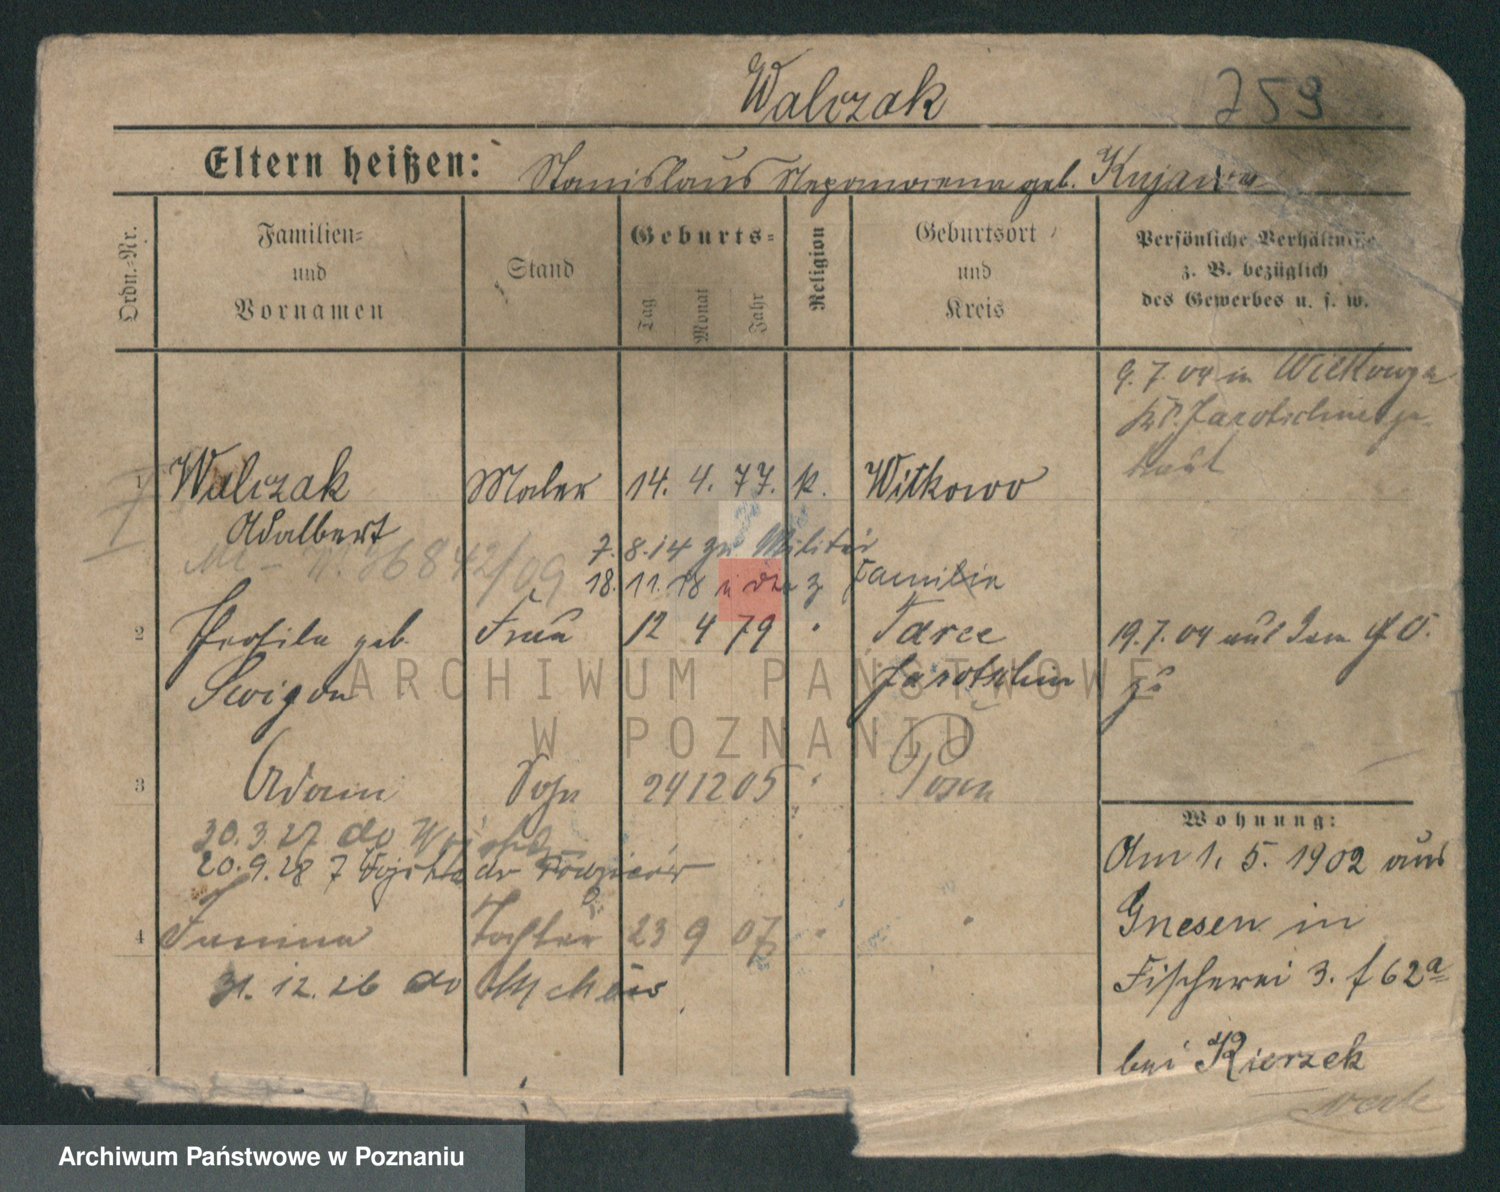 Walczak 759
Eltern heißen: Stanislaus Nepomocena geb. Kujawa
Ordn.-Nr.
Familien-
und
Vornamen
Stand
Geburts-
Tag
Monat
Jahr
Religion
Geburtsort
und
Kreis
Persönliche Verhältnisse
z. B. bezüglich
des Gewerbes u. s. w.
9. 7. 04 in Wilkowya
Kr. Jarotschin ge-
traut
1 Walczak Maler 14. 4. 77. k. Witkowo
Adalbert
36842/09
7. 8. 14 zu Militär
18. 11. 18 z Familie
2 geb. Frau 12 4 79 " Tarce
Jarotschin
19. 7. 04 aus dem
zu
3 Adam Sohn 24 12 05 " Posen
30. 3. 27 do
20. 9. 28 z do
4 Janina Tochter 23 9 07 " "
31. 12. 26 do
Wohnung:
Am 1. 5. 1902 aus
Gnesen in
Fischerei 3. f 62a
bei Kierzek
ARCHIWUM PAŃSTWOWE
W POZNANIU
Archiwum Państwowe w Poznaniu